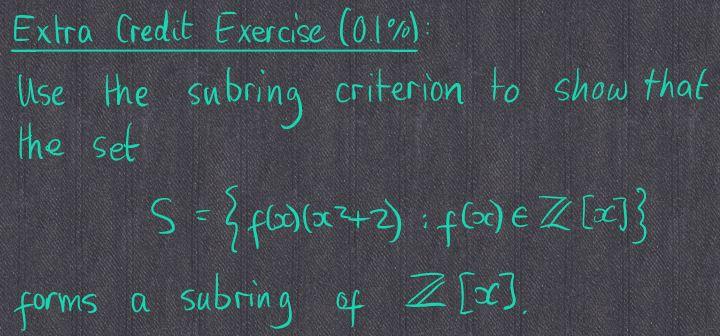 Extra Credit Exercise (0.1%):
Use the subring criterion to show that
the set
S = {f(x)(x²+2) : f(x) ∈ ℤ[x]}
forms a subring of ℤ[x].